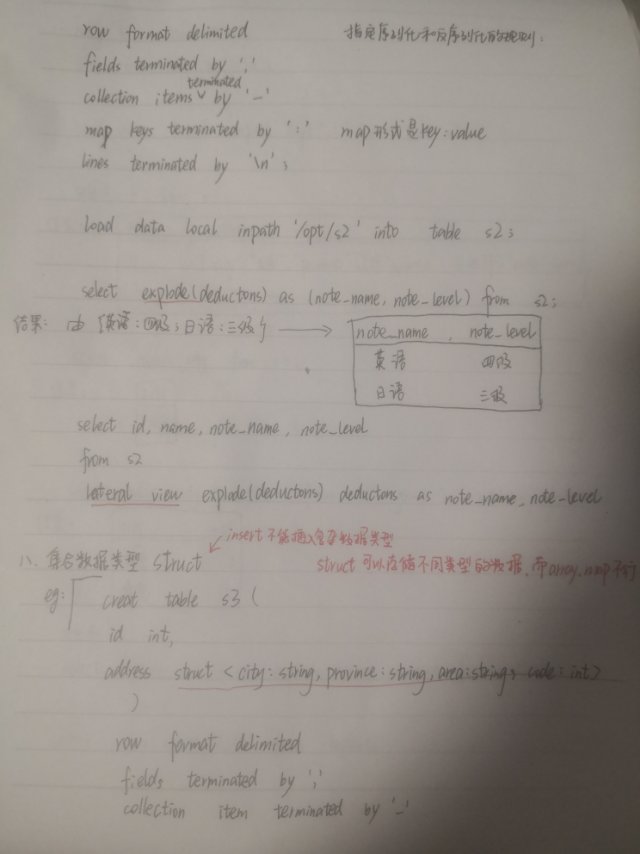 row format delimited 指定序列化和反序列化的规则:
fields terminated by ','
collection items terminated by '_'
map keys terminated by ':' map形式是key:value
lines terminated by '\n';
load data local inpath '/opt/s2' into table s2;
select explode(deductons) as (note_name, note_level) from s2;
结果: 由 {英语:四级;日语:三级} → note_name , note_level
英语 四级
日语 三级
select id, name, note_name, note_level
from s2
lateral view explode(deductons) deductons as note_name, note_level
insert不能插入复杂数据类型
八. 集合数据类型 struct struct可以存储不同类型的数据,而array,map不行
eg: creat table s3 (
id int,
address struct <city: string, province: string, area: string, code: int>
)
row format delimited
fields terminated by ','
collection item terminated by '_'